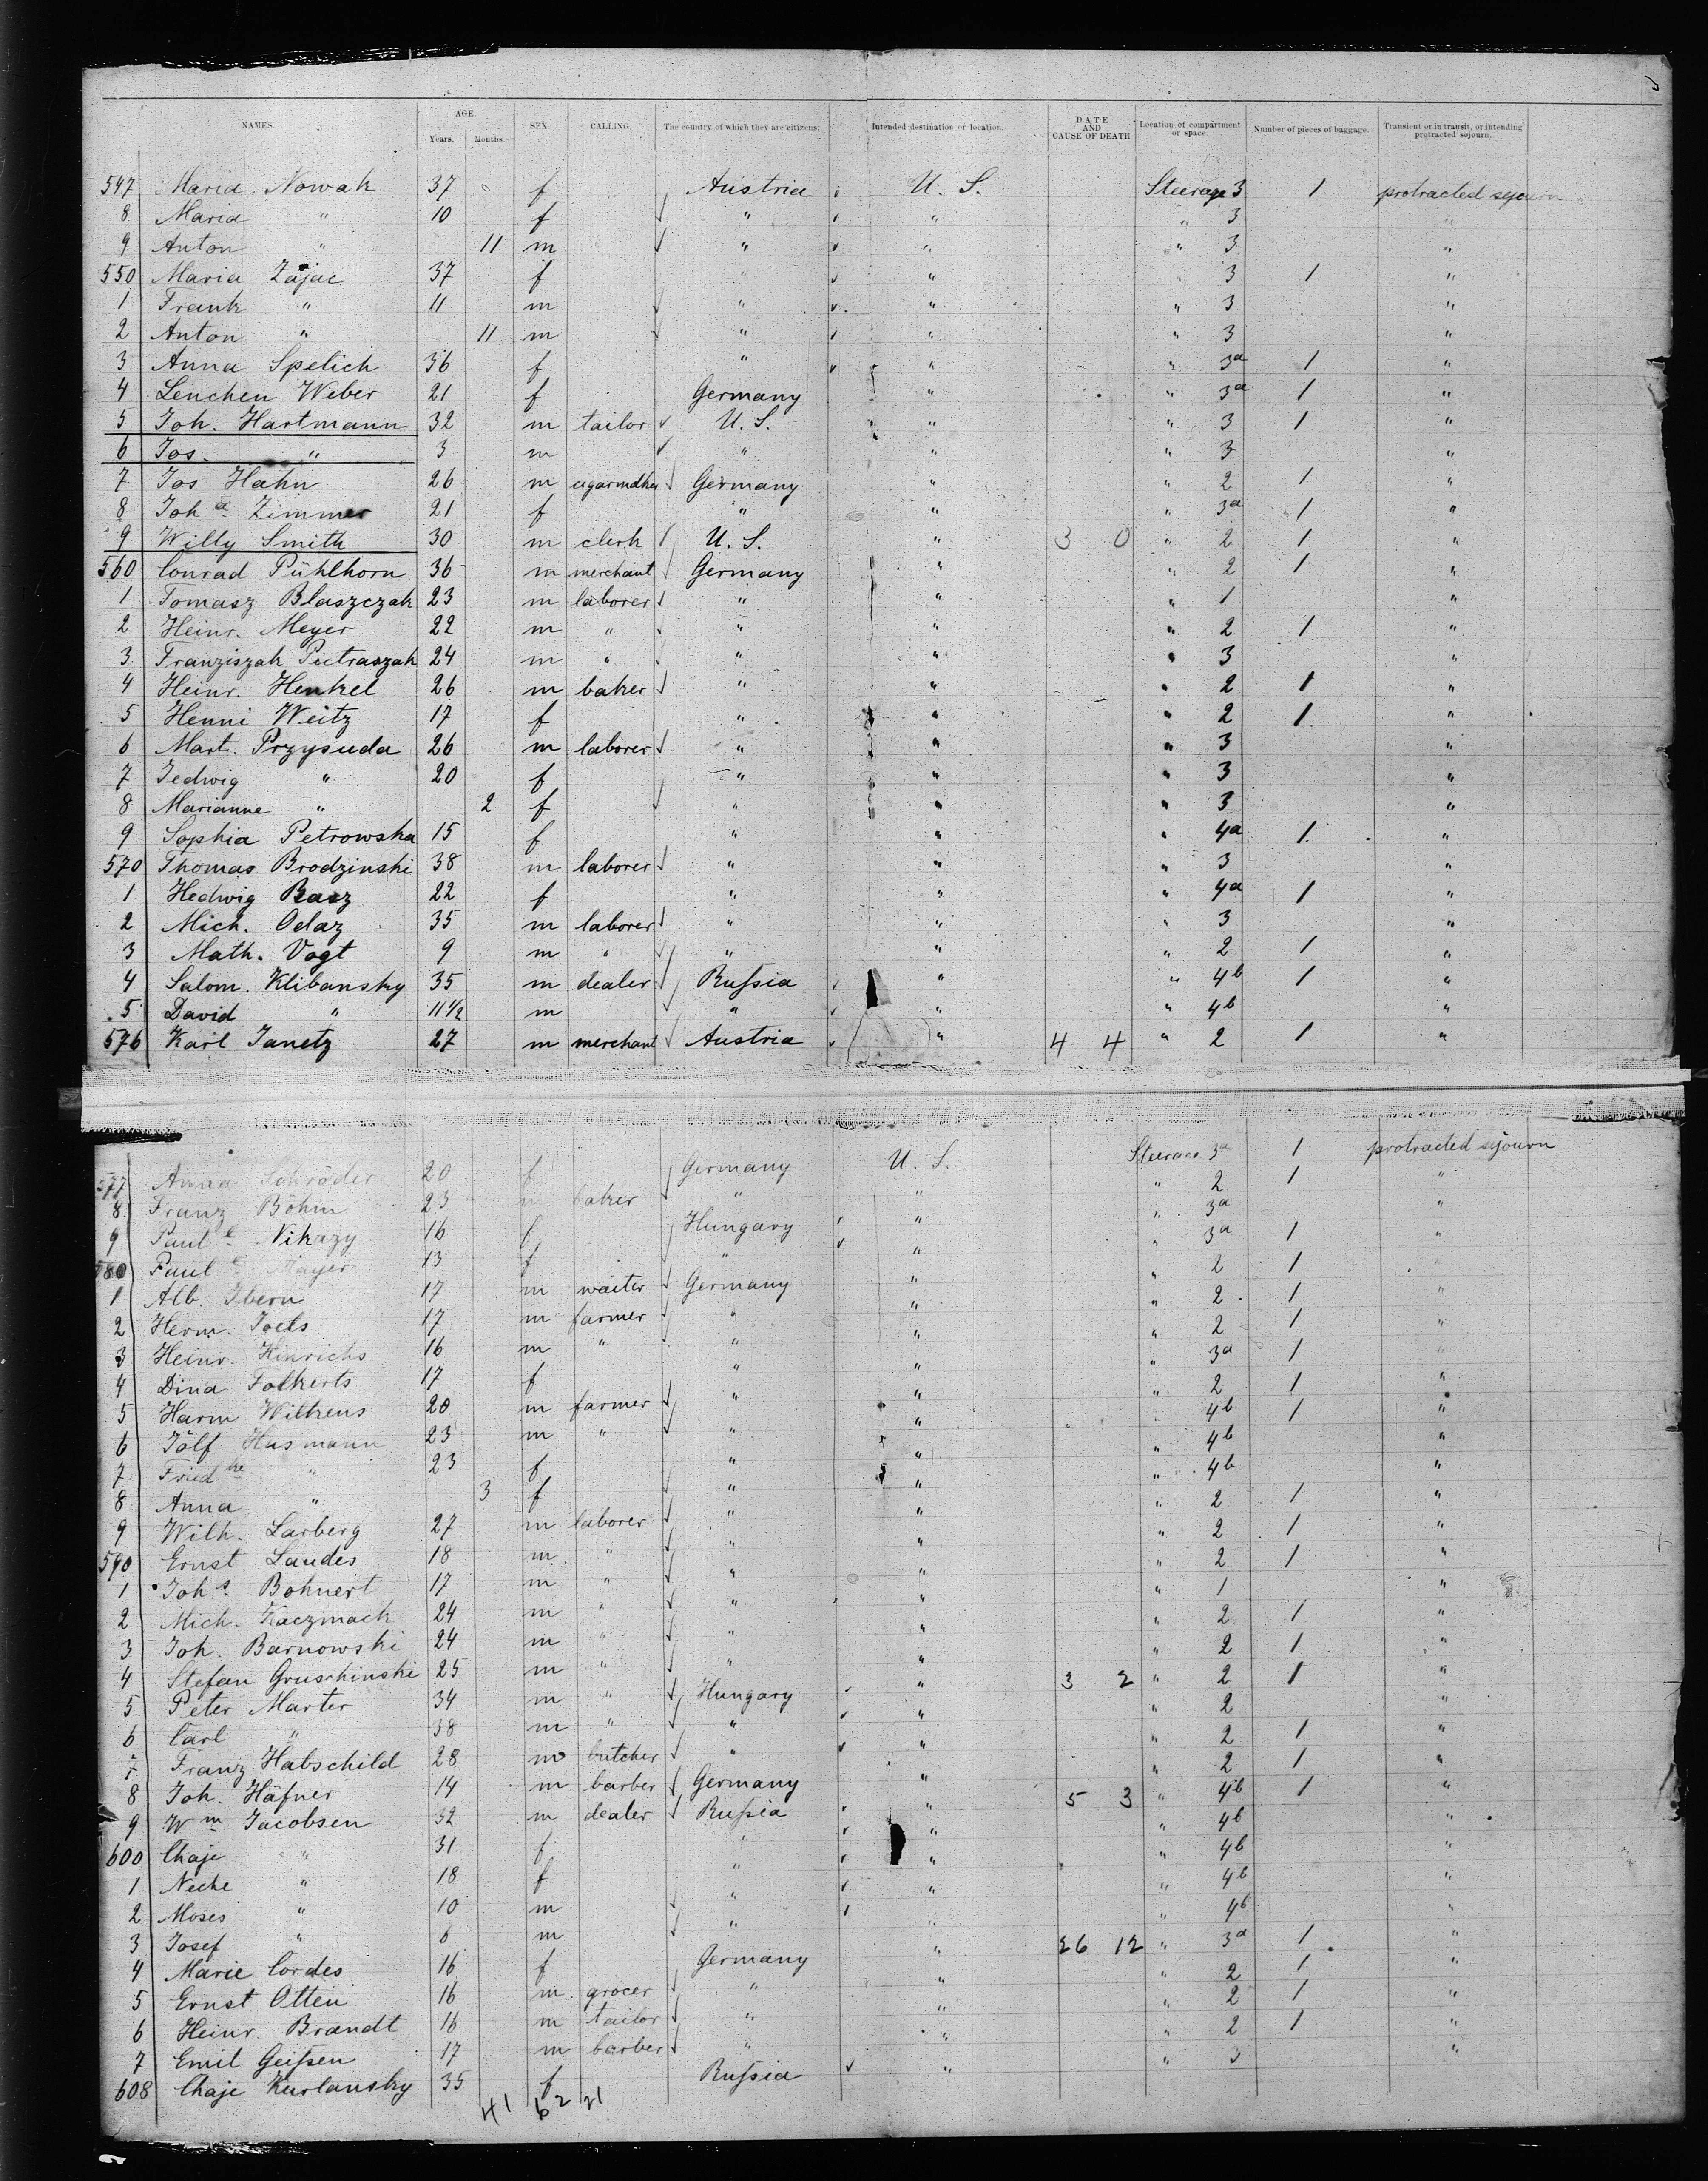 NAMES. AGE. Years. Months. SEX. CALLING. The country of which they are citizens. Intended destination or location. DATE AND CAUSE OF DEATH Location of compartment or space. Number of pieces of baggage. Transient or in transit, or intending protracted sojourn.
547 Maria Nowak 37 f Austria U. S. Steerage 3 1 protracted sejourn
8 Maria " 10 f " " " 3 "
9 Anton " 11 m " " " 3 "
550 Maria Zajac 37 f " " 3 1 "
1 Frank " 11 m " " " 3 "
2 Anton " 11 m " " " 3 "
3 Anna Spelich 36 f " " " 3a 1 "
4 Lenchen Weber 21 f Germany " " 3a 1 "
5 Joh. Hartmann 32 m tailor U. S. " " 3 1 "
6 Jos. " 3 m " " " 3 "
7 Jos Hahn 26 m Germany " " 2 1 "
8 Joha Zimmer 21 f " " " 3a 1 "
9 Willy Smith 30 m clerk U. S. " 3 0 " 2 1 "
560 Conrad Pühlhorn 36 m merchant Germany " " 2 1 "
1 Tomasz Blaszczak 23 m laborer " " " 1 "
2 Heinr. Meyer 22 m " " " " 2 1 "
3 Franziszak Pietraszak 24 m " " " " 3 "
4 Heinr. Henkel 26 m baker " " " 2 1 "
5 Henni Weitz 17 f " " " 2 1 "
6 Mart. Przysuda 26 m laborer " " " 3 "
7 Jedwig " 20 f " " " 3 "
8 Marianne " 2 f " " " 3 "
9 Sophia Petrowska 15 f " " " 4a 1 "
570 Thomas Brodzinski 38 m laborer " " " 3 "
1 Hedwig Basz 22 f " " " 4a 1 "
2 Mich. Odaz 35 m laborer " " " 3 "
3 Math. Vogt 9 m " " " " 2 1 "
4 Salom. Klibansky 35 m dealer Rußia " " 4b 1 "
5 David " 11 1/2 m " " " 4b "
576 Karl Janetz 27 m merchant Austria " 4 4 " 2 1 "
577 Anna Schröder 20 f Germany U. S. Steerage 3a 1 protracted sejourn
8 Franz Böhm 23 m baker " " " 2 1 "
9 Paule Nikazy 16 f Hungary " " 3a "
580 Paule Mayer 13 f " " " 3a 1 "
1 Alb. Ibern 17 m waiter Germany " " 2 1 "
2 Herm. Joels 17 m farmer " " " 2 1 "
3 Heinr. Hinrichs 16 m " " " " 2 1 "
4 Dina Folkerts 17 f " " " 3a 1 "
5 Harm Wilkens 20 m farmer " " " 2 1 "
6 Jölf Husmann 23 m " " " 4b 1 "
7 Friedke " 23 f " " " 4b "
8 Anna " 3 f " " " 4b "
9 Wilh. Larberg 27 m laborer " " " 2 1 "
590 Ernst Landes 18 m " " " " 2 1 "
1 Johs. Bohnert 17 m " " " " 2 1 "
2 Mich. Kaczmack 24 m " " " " 1 "
3 Joh. Barnowski 24 m " " " " 2 1 "
4 Stefan Gruschinski 25 m " " " " 2 1 "
5 Peter Marter 34 m " Hungary " 3 2 " 2 1 "
6 Carl " 38 m " " " " 2 "
7 Franz Habschild 28 m butcher " " 2 1 "
8 Joh. Häfner 14 m barber Germany " " 2 1 "
9 Wm Jacobsen 32 m dealer Rußia " 5 3 " 4b 1 "
600 Chaje " 31 f " " " 4b "
1 Neche " 18 f " " " 4b "
2 Moses " 10 m " " " 4b "
3 Josef " 6 m " " " 4b "
4 Marie Cordes 16 f Germany " 26 12 " 3a 1 "
5 Ernst Otten 16 m grocer " " " 2 1 "
6 Heinr. Brandt 16 m tailor " " " 2 1 "
7 Emil Geißen 17 m barber " " " 2 1 "
608 Chaje Kurlansky 35 f Rußia " " 3 "
41 62 21